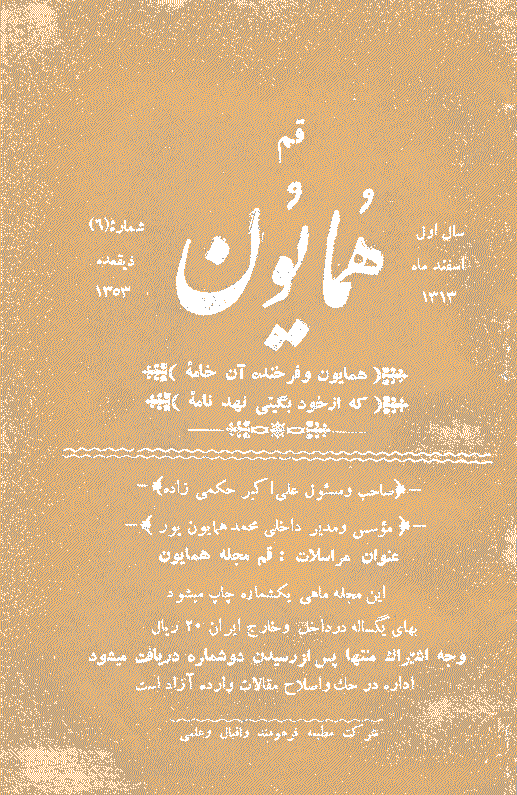 قم
همایون
سال اول
اسفند ماه
۱۳۱۳
شمارهٔ (۶)
ذیقعده
۱۳۵۳
همایون و فرخنده آن خامهٔ
که از خود بگیتی نهد نامهٔ
صاحب ومسئول علی اکبر حکمی زاده
مؤسس ومدیر داخلی محمد همایون پور
عنوان مراسلات : قم مجله همایون
این مجله ماهی یکشماره چاپ میشود
بهای یکساله درداخل وخارج ایران ۲۰ ریال
وجه اشتراك منتها پس ازرسیدن دوشماره دریافت میشود
اداره در حك واصلاح مقالات وارده آزاد است
شرکت مطبعه فرهومند واقبال وعلمی